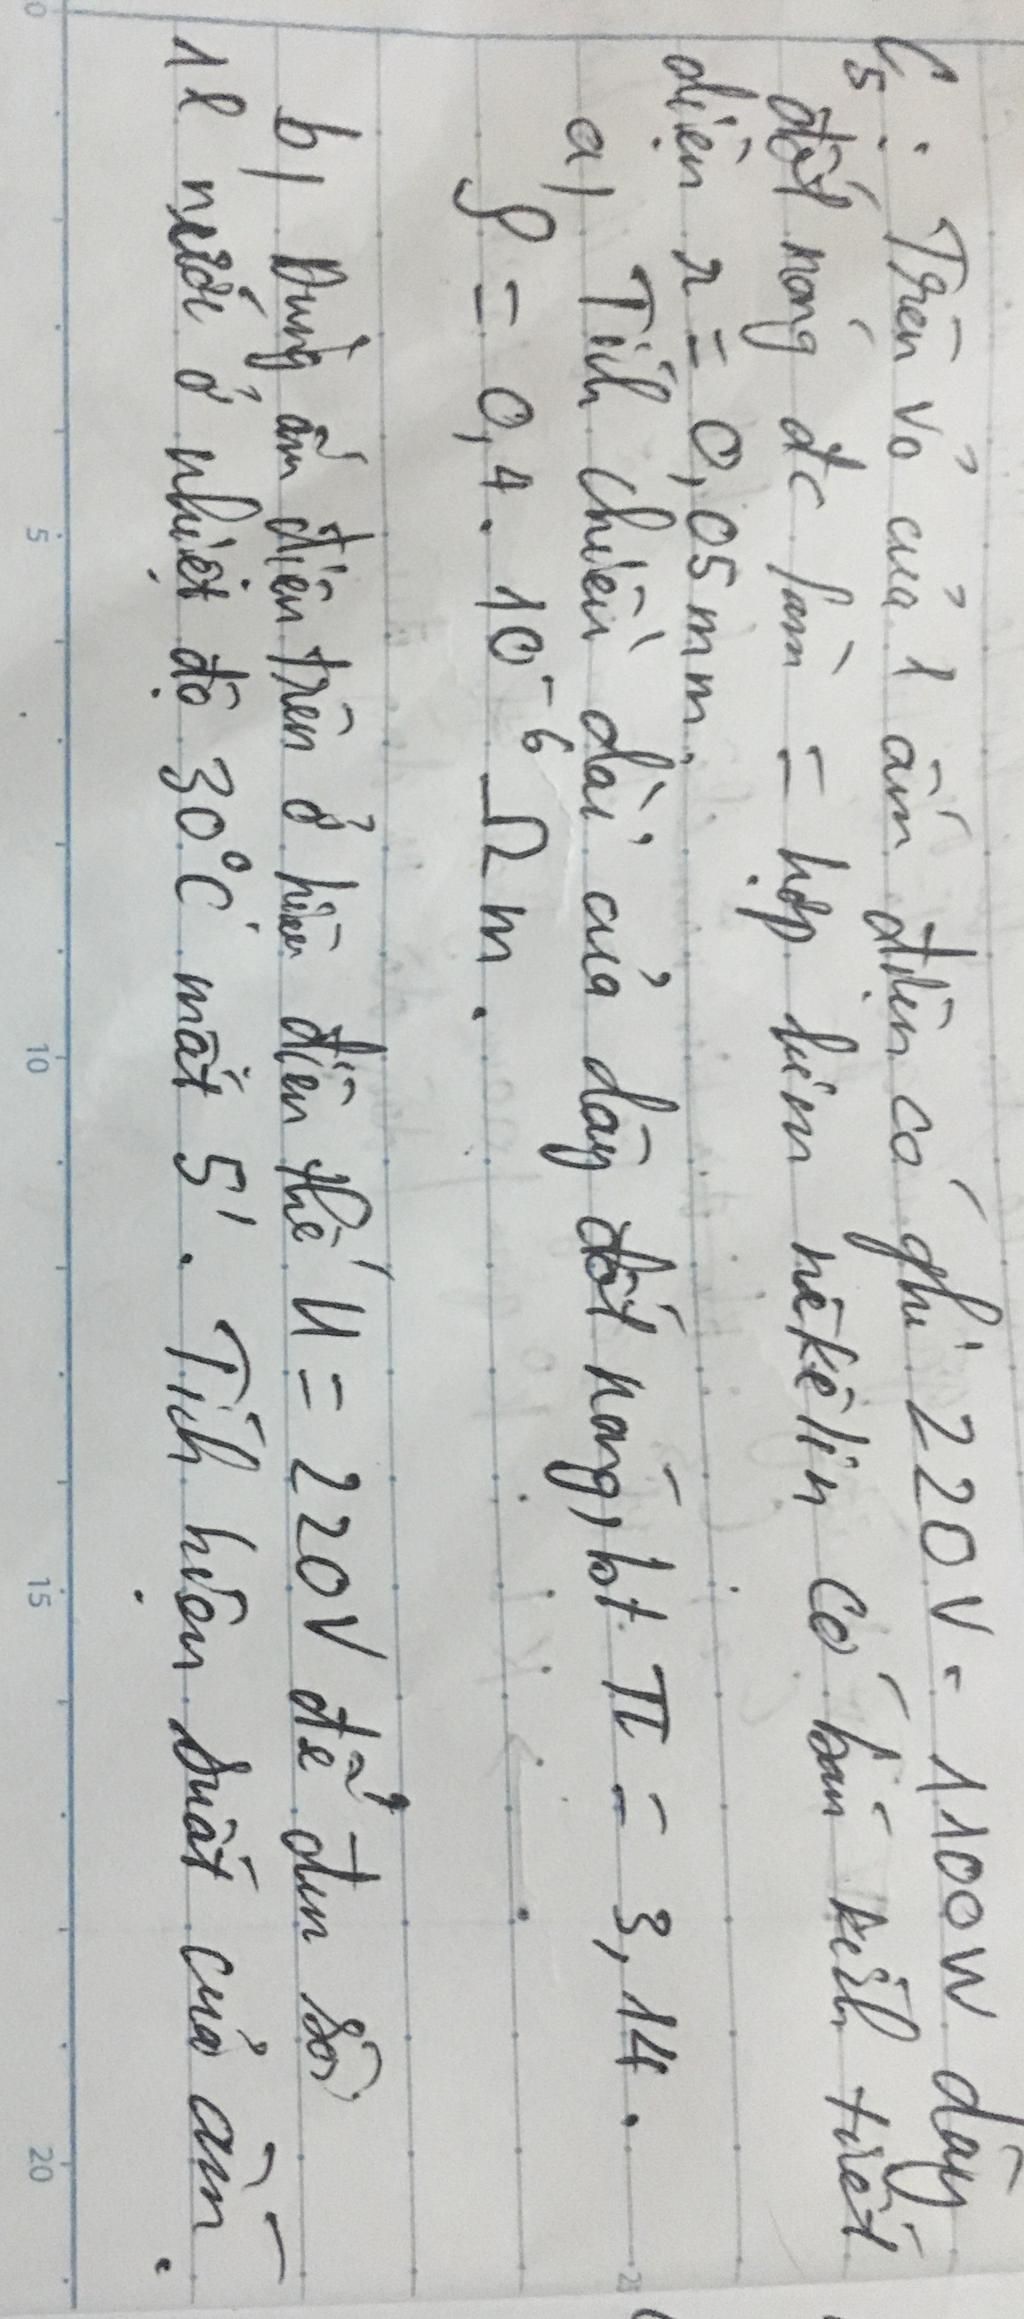 C5: Trên vỏ của 1 ấm điện có ghi 220V - 1100W dây
đốt nóng đc làm = hợp kim nêkêlin có bán kính tiết
diện r = 0,05mm.
a) Tính chiều dài của dây đốt nóng, bt π = 3,14.
ρ = 0,4.10⁻⁶ Ωm.
b) Dùng ấm điện trên ở hiệu điện thế U = 220V để đun sôi
1l nước ở nhiệt độ 30°C mất 5'. Tính hiệu suất của ấm.
0 5 10 15 20